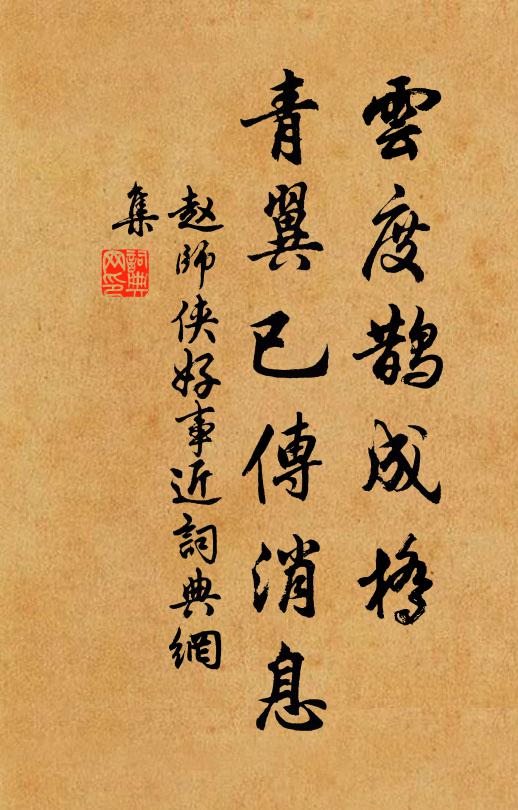 雲度鵲成橋
青翼已傳消息
赵師侠好事近詞典網
集
詞典
网印